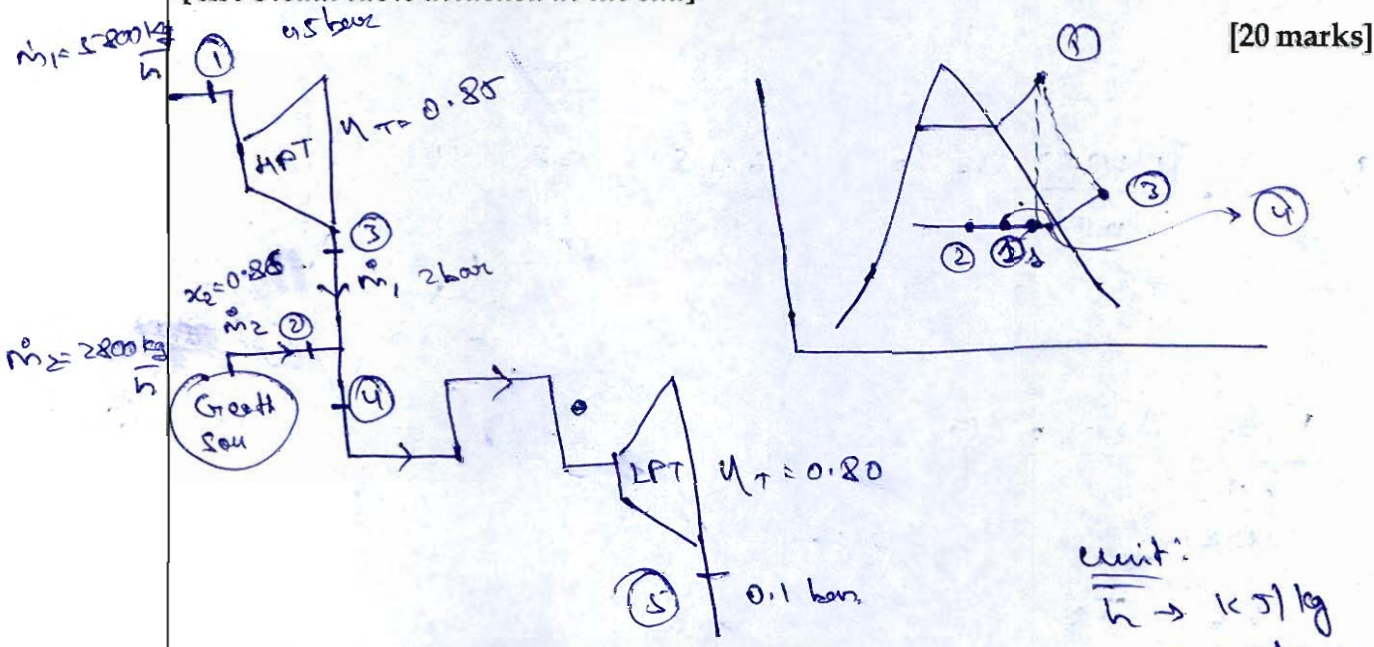 [20 marks]
ṁ₁ = 5800 kg/h
①
45 bar
HPT
η_T = 0.85
③
x₂ = 0.86
ṁ₁
2 bar
ṁ₂
②
ṁ₂ = 2800 kg/h
④
LPT
η_T = 0.80
⑤
0.1 bar
①
③
②
④
unit:
h → kJ/kg